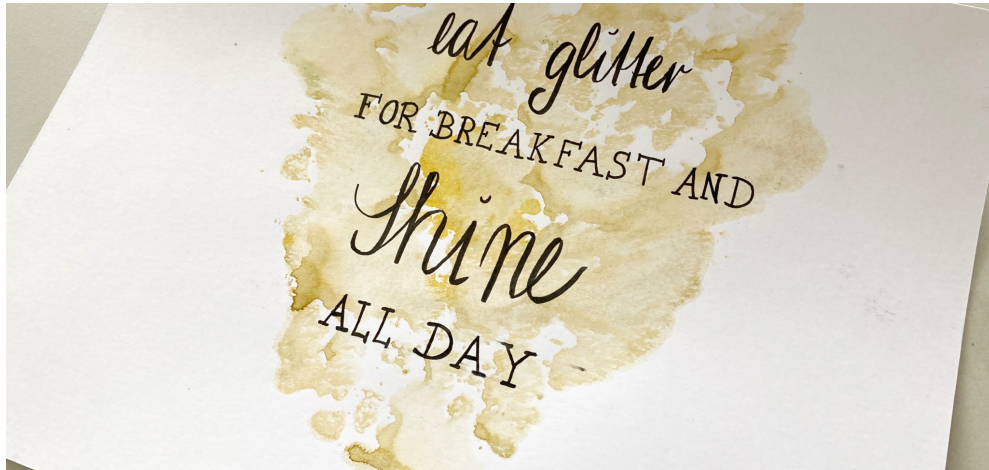 eat glitter
FOR BREAKFAST AND
shine
ALL DAY